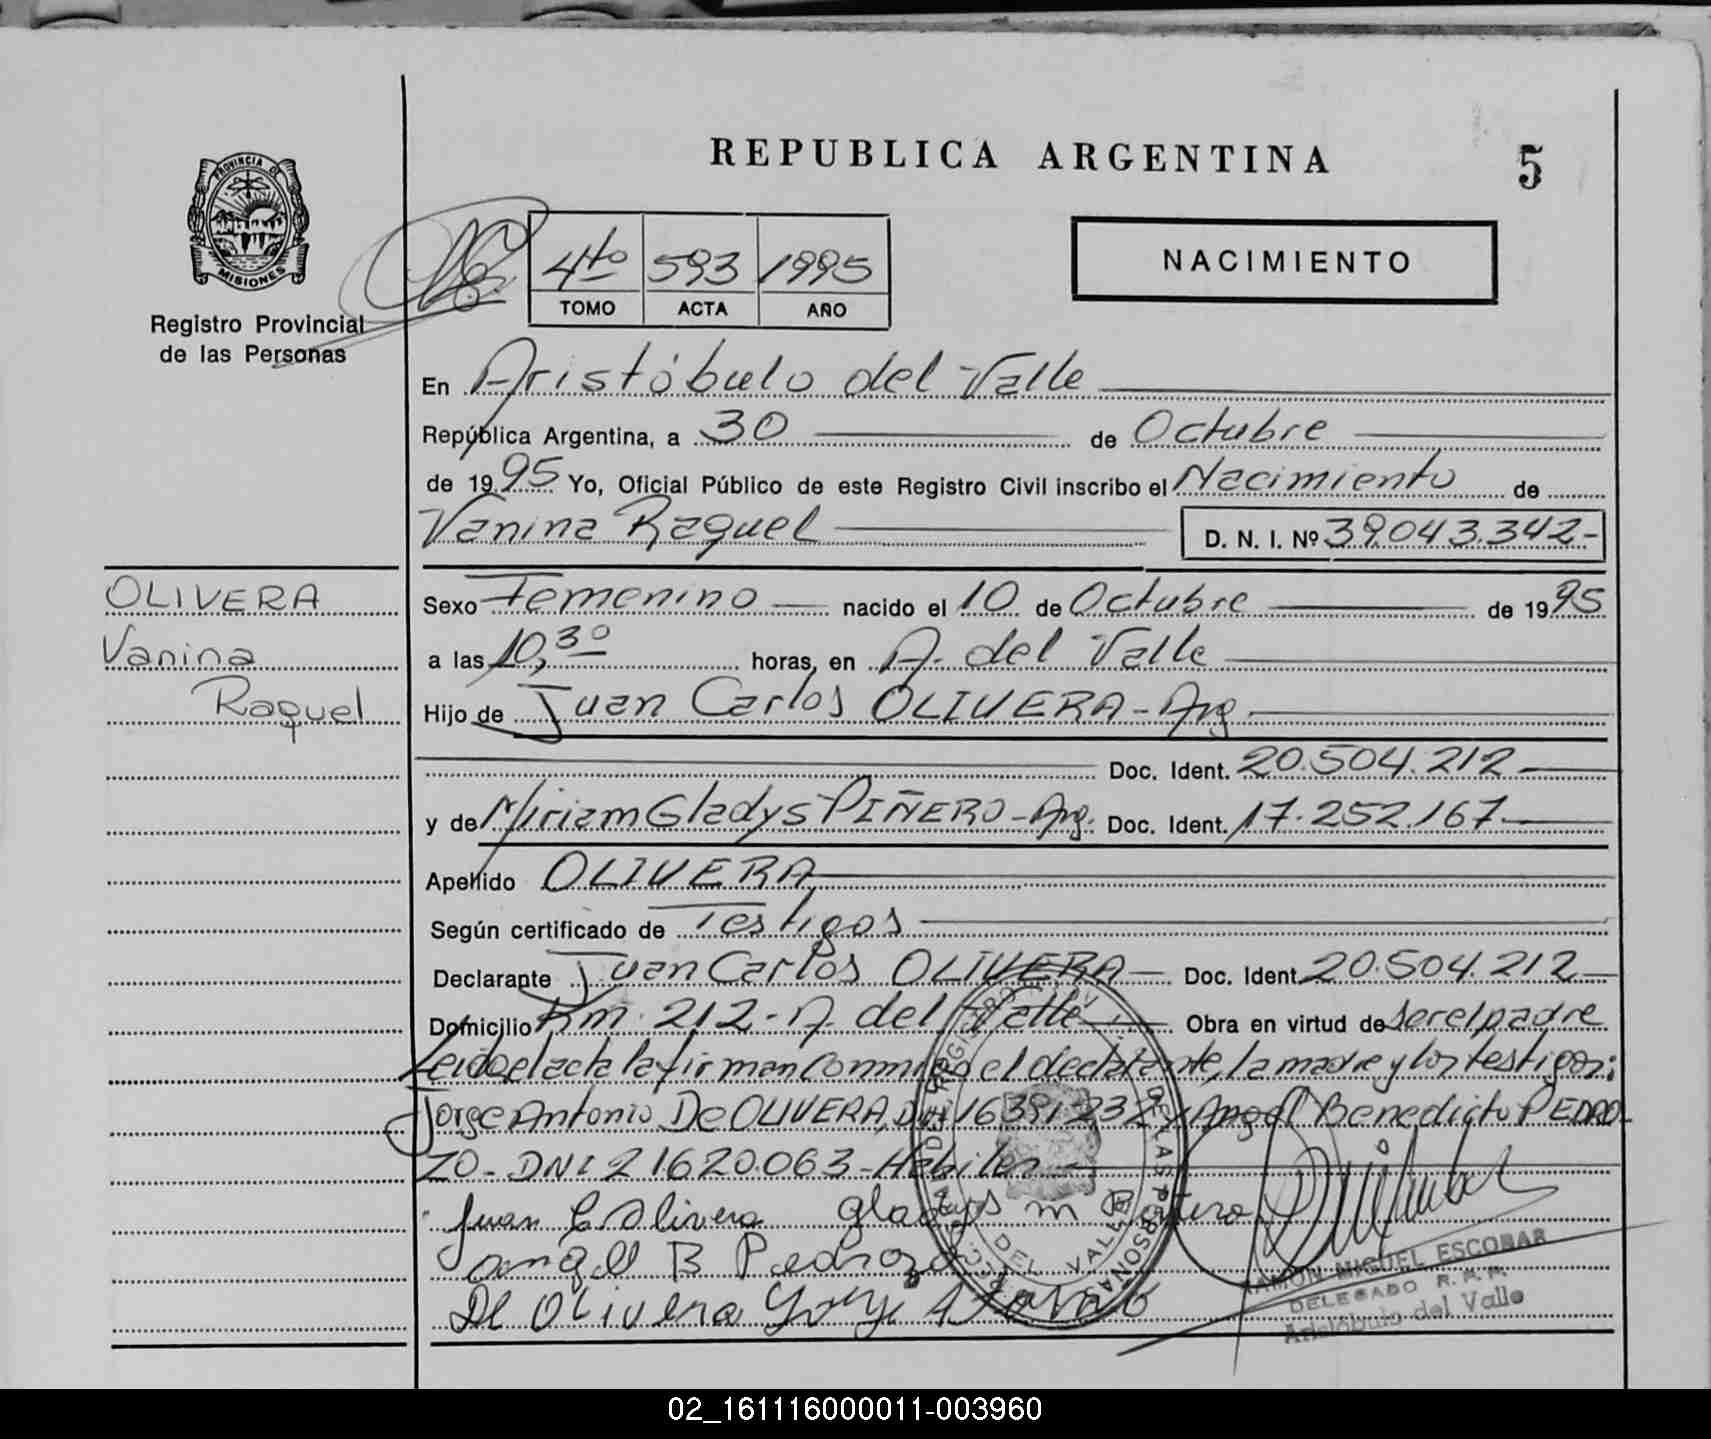 REPUBLICA ARGENTINA
5
PROVINCIA DE
MISIONES
Registro Provincial
de las Personas
4to 593 1995
TOMO ACTA AÑO
NACIMIENTO
En Aristóbulo del Valle
República Argentina, a 30 de Octubre
de 1995 Yo, Oficial Público de este Registro Civil inscribo el Nacimiento de
Vanina Raquel D. N. I. Nº 39.043.342-
OLIVERA
Vanina
Raquel
Sexo Femenino nacido el 10 de Octubre de 1995
a las 10,30 horas, en A. del Valle
Hijo de Juan Carlos OLIVERA - Arg.
Doc. Ident. 20.504.212
y de Miriam Gladys PIÑERO - Arg. Doc. Ident. 17.252.167
Apellido OLIVERA
Según certificado de Testigos
Declarante Juan Carlos OLIVERA Doc. Ident. 20.504.212
Domicilio Km. 212 - A. del Valle Obra en virtud de ser el padre
Leido el acta la firman conmigo el declarante, la madre y los testigos:
Jorge Antonio De OLIVERA, DNI. 16391232 y Angel Benedicto PEDRO
ZO - DNI 21620.063 - Habiles
Juan C Olivera Gladys M
Angel B Pedrozo
De Olivera Jorge Antonio
DEL VALLE
RAMON MIGUEL ESCOBAR
DELEGADO R. P. P.
Aristóbulo del Valle
02_161116000011-003960